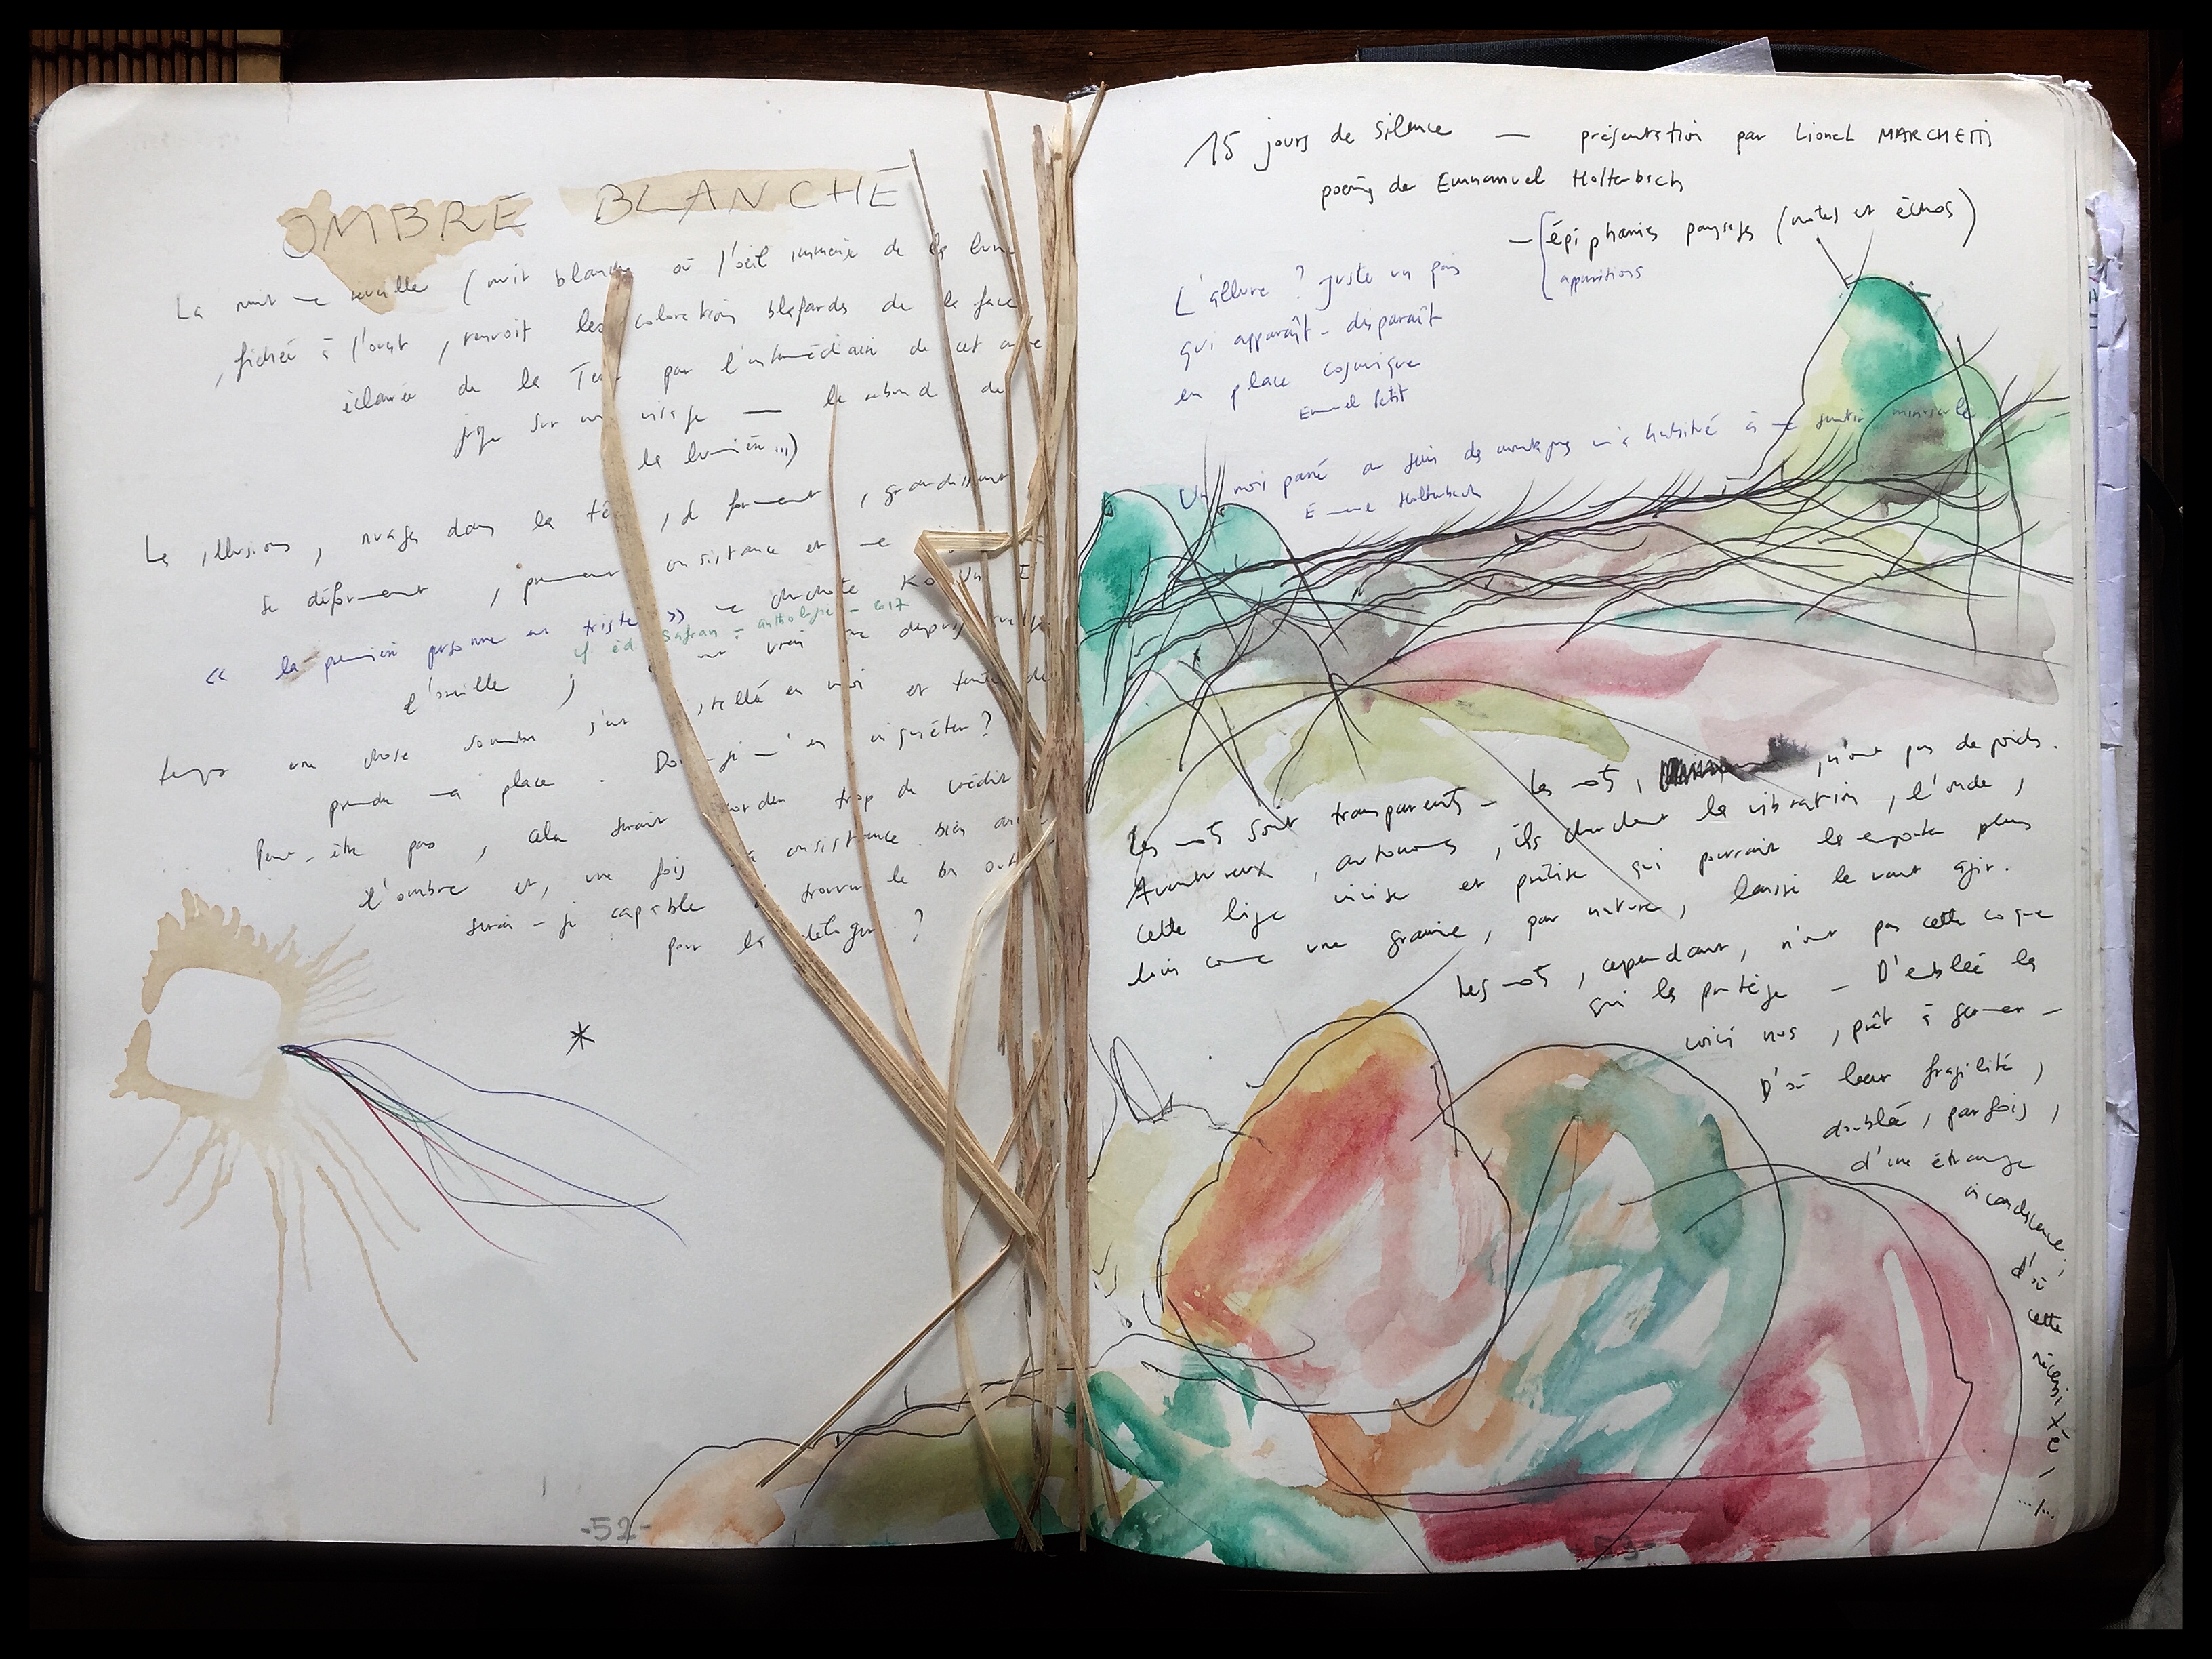 OMBRE BLANCHE
La nuit me réveille (nuit blanche où l'œil immense de la lune
, fichée à l'ouest, renvoit les colorations blafardes de la face
éclairée de la Terre par l'intermédiaire de cet
sur mon visage — le rebond de
la lumière...)
Les illusions, nuages dans la tête, se forment, grandissent
se déforment, prennent consistance et me
« la première personne est triste » me chuchote
cf éd. Safran : anthologie - 2017
l'oreille ; vrai que depuis
temps une chose sombre s'est en moi et tente de
prendre ma place. Dois-je m'en inquiéter ?
Peut-être pas, cela serait trop de crédit
l'ombre et, une fois sa consistance bien
serai-je capable trouver le bon
pour la ?
*
-52-
15 jours de silence — présentation par Lionel MARCHETTI
poèmes de Emmanuel Holterbach
— épiphanies paysages (notes et échos)
apparitions
L'allure ? Juste un pas
qui apparaît - disparaît
en place cosmique
Emmanuel Petit
Un mois passé au sein des montagnes m'a habitué à me sentir minuscule
Emmanuel Holterbach
Les mots sont transparents — Les mots, n'ont pas de poids.
Aventureux, autonomes, ils cherchent la vibration, l'onde,
cette ligne incise et précise qui pourrait les emporter plus
loin comme une graine, par nature, laisse le vent agir.
Les mots, cependant, n'ont pas cette coque
qui les protège — D'emblée les
voici nus, prêt à germer —
D'où leur fragilité,
doublée, parfois,
d'une étrange
incandescence,
d'où
cette
nécessité,
.../...